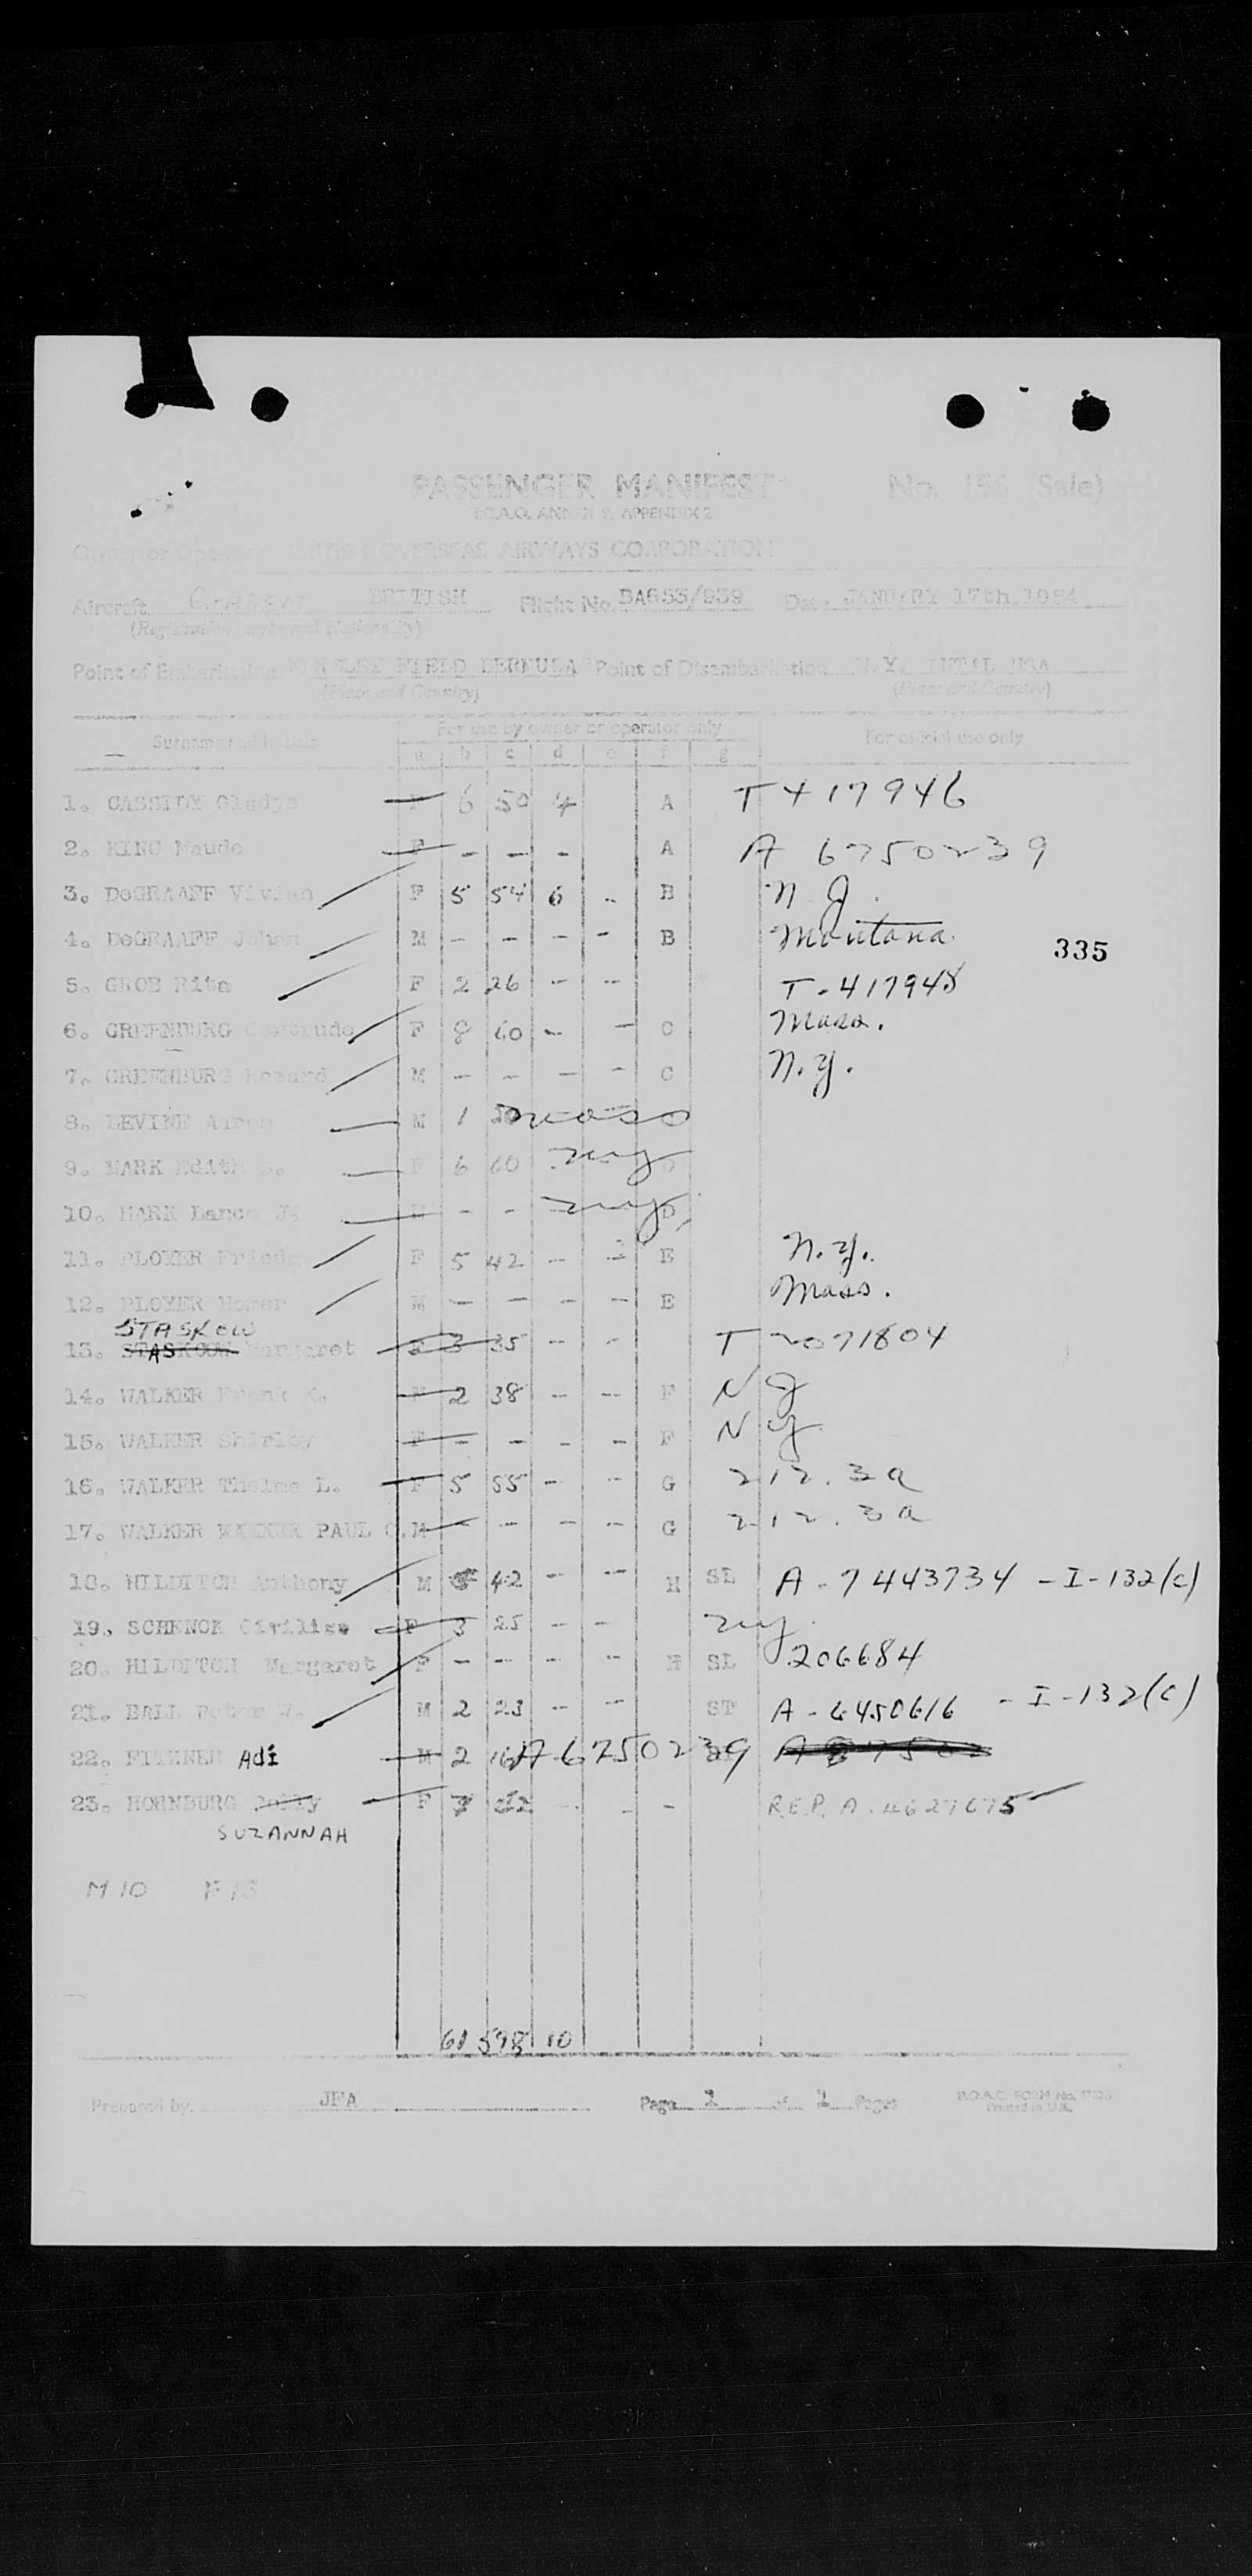 PASSENGER MANIFEST No. 156 (Sale)
I.C.A.O. ANNEX 9, APPENDIX 2
Owner or Operator BRITISH OVERSEAS AIRWAYS CORPORATION
Aircraft BRITISH Flight No. BA653/939 Date JANUARY 17th, 1954
(Registration marks and Nationality)
Point of Embarkation KINDLEY FIELD BERMUDA Point of Disembarkation N.Y. INTNL USA
(Place and Country) (Place and Country)
For use by owner or operator only
Surname and Initials For official use only
a b c d e f g
1. CASSIDY Gladys F 6 50 4 A T 417946
2. KING Maude F - - - A A 6750239
3. DeGRAAFF Vivian F 5 54 6 - B N J.
4. DeGRAAFF Johan M - - - - B Montana
335
5. GROB Rita F 2 26 - - T-417948
6. GREENBURG Gertrude F 8 60 - - C Mass.
7. GREENBURG Howard M - - - - C N.Y.
8. LEVINE Aaron M 1 50 mass
9. MARK Edith F 6 60 ny D
10. MARK Lance J. M - - ny D
11. PLOYER Frieda F 5 42 - - E N.Y.
12. PLOYER Homer M - - - - E Mass.
STASKOW
13. Margaret F 3 35 - - T 2071804
14. WALKER Frank K. M 2 38 - - F N J
15. WALKER Shirley F - - - - F N Y
16. WALKER Thelma L. F 5 55 - - G 212.3a
17. WALKER PAUL C. M - - - - G 212.3a
18. HILDITCH Anthony M 5 42 - - H SL A-7443734 - I-132(c)
19. SCHENCK F 3 25 - - ny.
20. HILDITCH Margaret F - - - - H SL 206684
21. BALL Peter W. M 2 23 - - ST A-6450616 - I-132(c)
22. Adi M 2 16 A 6750239
23. HORNBURG F - - - R.E.P. A.4627675
SUZANNAH
M 10 F 13
61 598 10
Prepared by JFA Page 1 of 1 Pages B.O.A.C. FORM No.
Printed in U.K.